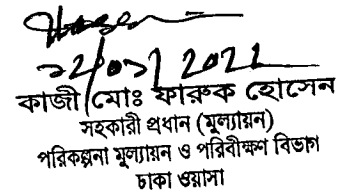 ২২/০২/2021
কাজী মোঃ ফারুক হোসেন
সহকারী প্রধান (মূল্যায়ন)
পরিকল্পনা মূল্যায়ন ও পরিবীক্ষণ বিভাগ
ঢাকা ওয়াসা